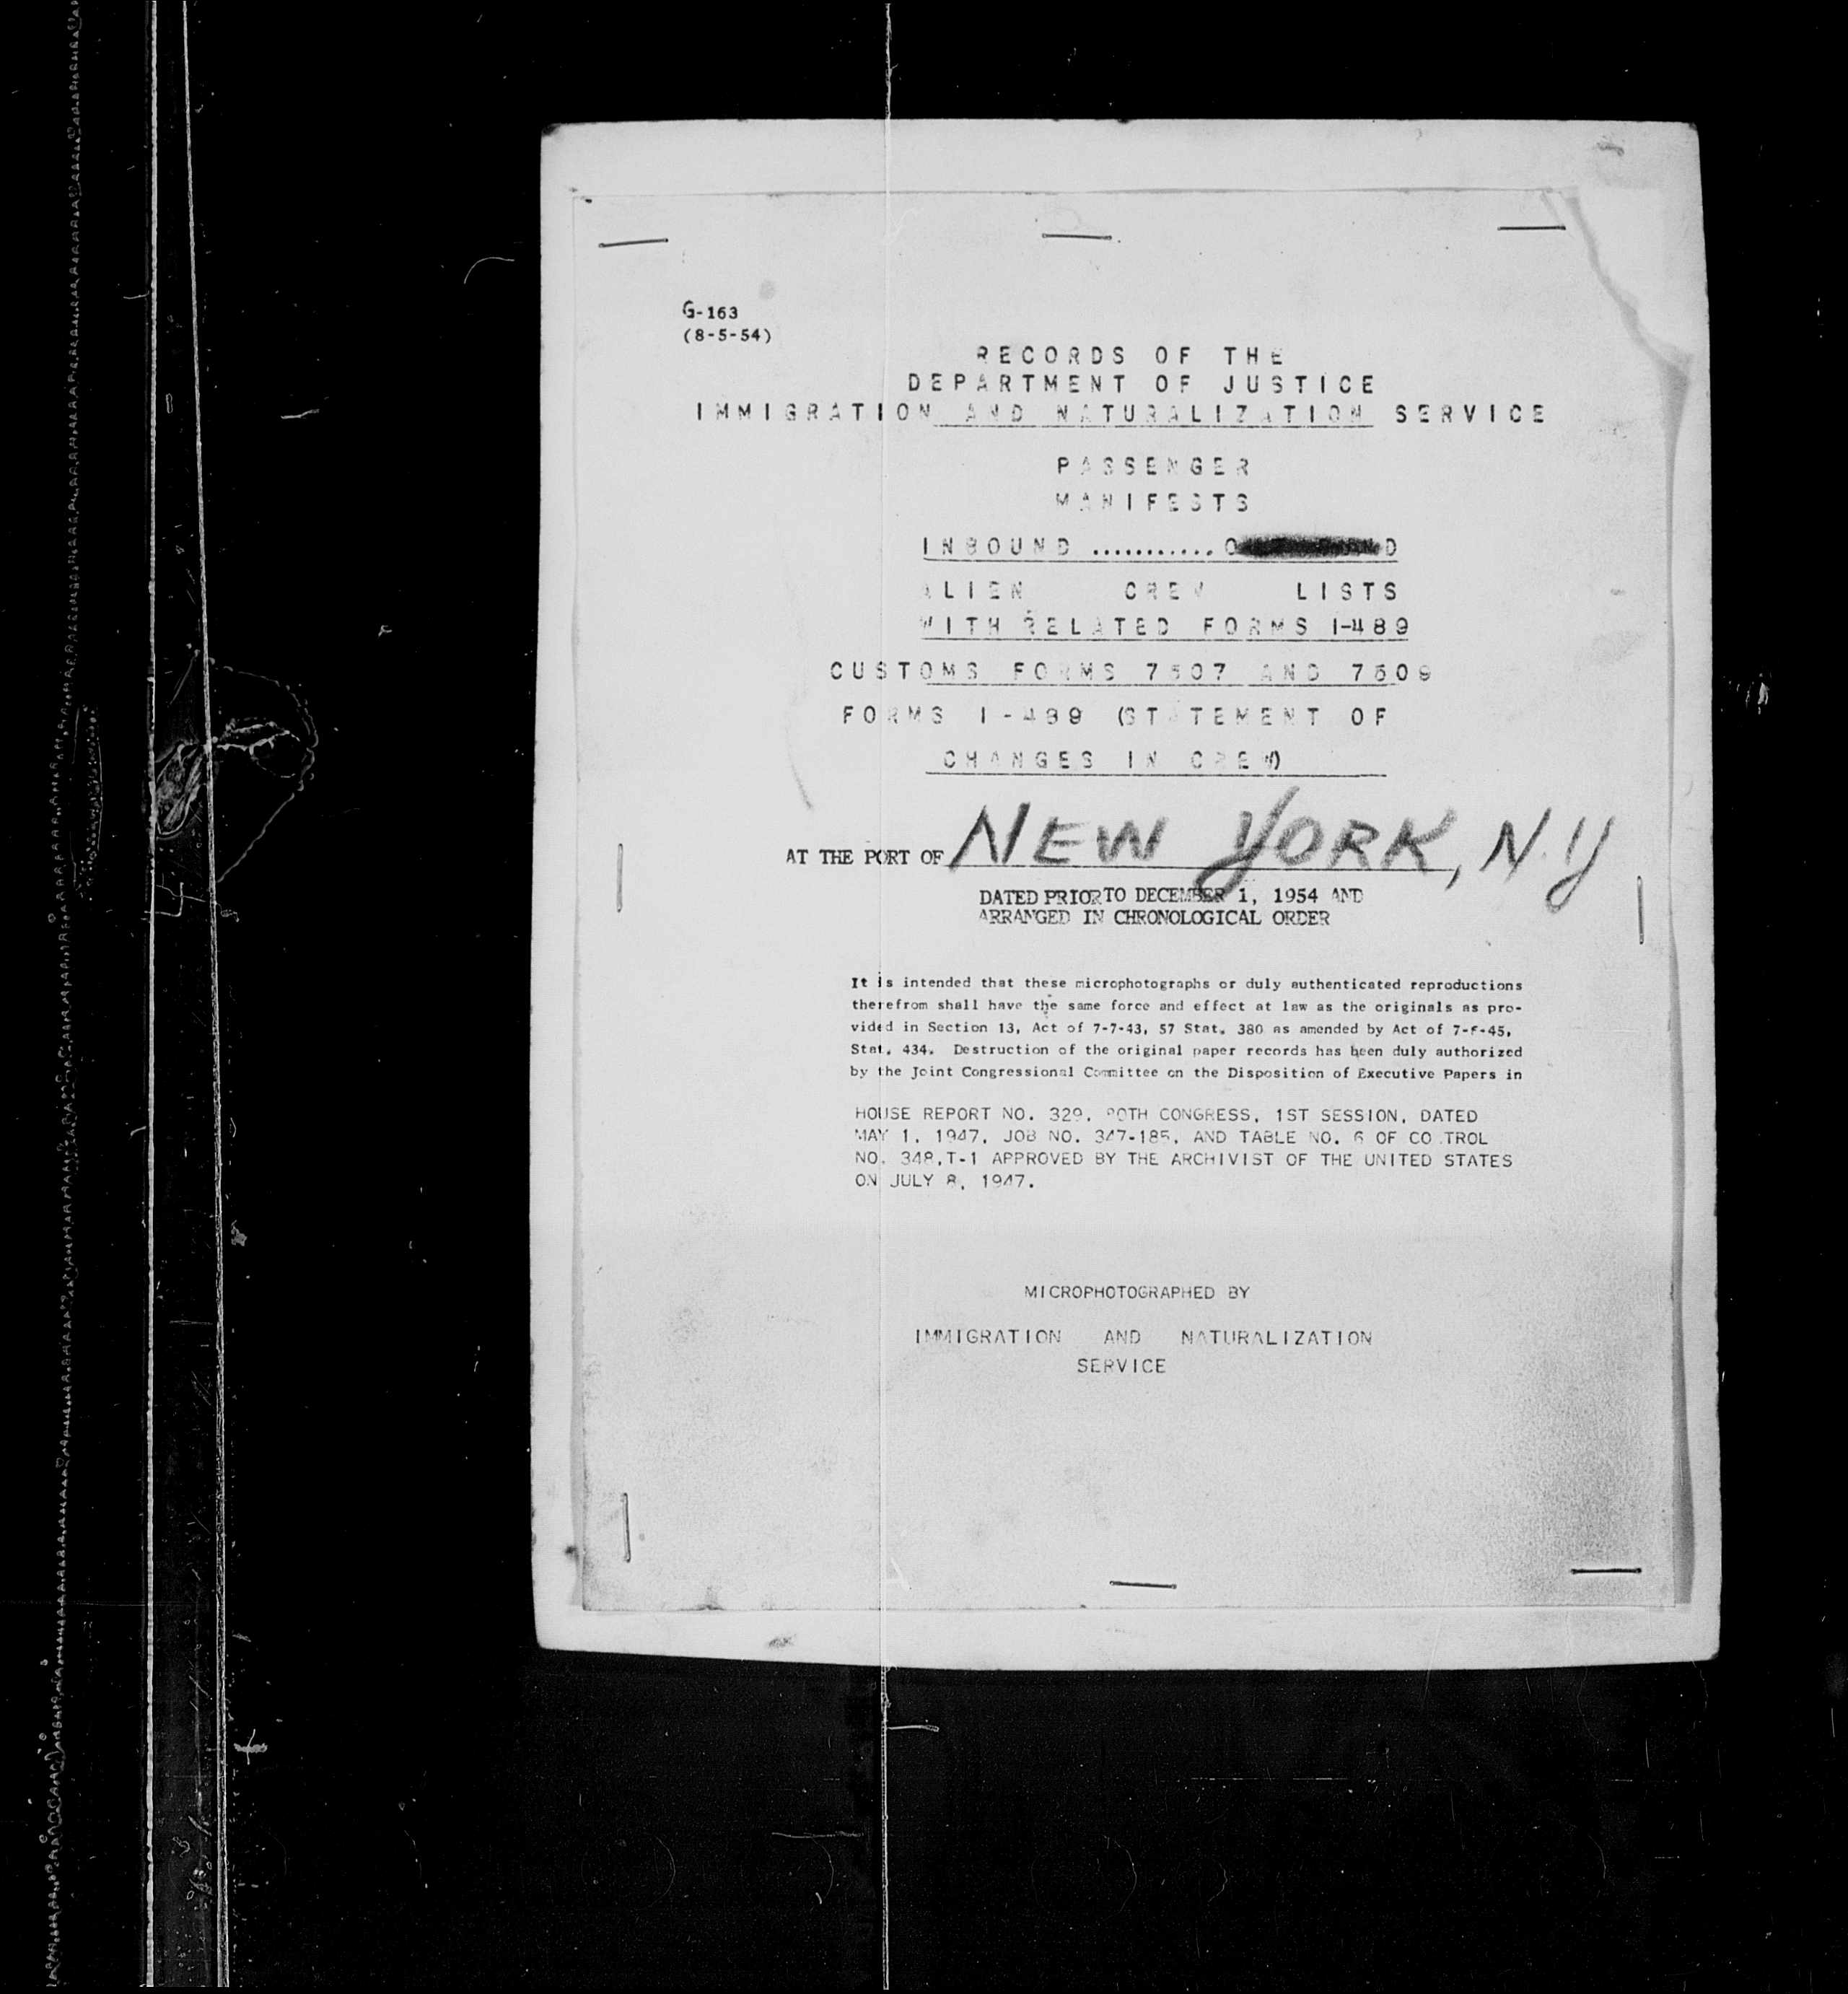 G-163
(8-5-54)
RECORDS OF THE
DEPARTMENT OF JUSTICE
IMMIGRATION AND NATURALIZATION SERVICE
PASSENGER
MANIFESTS
INBOUND ...........
ALIEN CREW LISTS
WITH RELATED FORMS I-489
CUSTOMS FORMS 7507 AND 7509
FORMS I-489 (STATEMENT OF
CHANGES IN CREW)
AT THE PORT OF NEW YORK, N.Y
DATED PRIOR TO DECEMBER 1, 1954 AND
ARRANGED IN CHRONOLOGICAL ORDER
It is intended that these microphotographs or duly authenticated reproductions
therefrom shall have the same force and effect at law as the originals as pro-
vided in Section 13, Act of 7-7-43, 57 Stat. 380 as amended by Act of
Stat. 434. Destruction of the original paper records has been duly authorized
by the Joint Congressional Committee on the Disposition of Executive Papers in
HOUSE REPORT NO. 329, 80TH CONGRESS, 1ST SESSION, DATED
MAY 1, 1947, JOB NO. 347-185, AND TABLE NO. 6 OF CO TROL
NO. 348,T-1 APPROVED BY THE ARCHIVIST OF THE UNITED STATES
ON JULY 8, 1947.
MICROPHOTOGRAPHED BY
IMMIGRATION AND NATURALIZATION
SERVICE